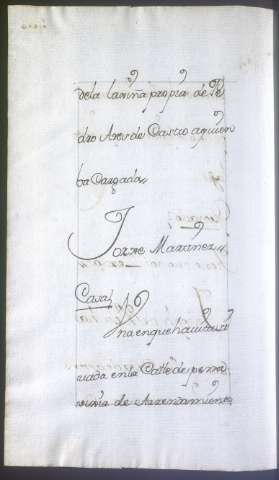 dela laviña propia de Pe
dro Ares de Castro aquien
ba Cargada,,
Jorxe Martinez,,
Casa) 16
Vna en que havita si
tuada en la Calle de
vinia de Arrendamiento